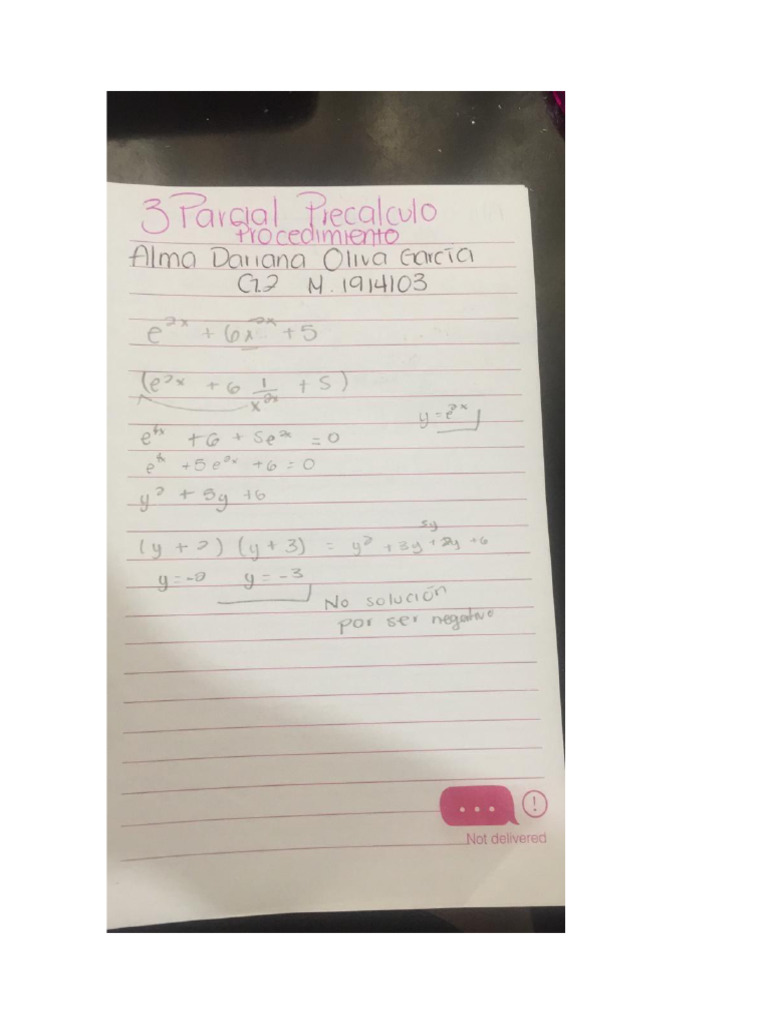 3 Parcial Precalculo
Procedimiento
Alma Dariana Oliva García
G.2 M. 1914103
e²ˣ + 6x⁻²ˣ + 5
(e²ˣ + 6 1/x²ˣ + 5)
y = e²ˣ
e⁴ˣ + 6 + 5e²ˣ = 0
e⁴ˣ + 5e²ˣ + 6 = 0
y² + 5y + 6
5y
(y + 2) (y + 3) = y² + 3y + 2y + 6
y = -2 y = -3
No solución
por ser negativo
Not delivered